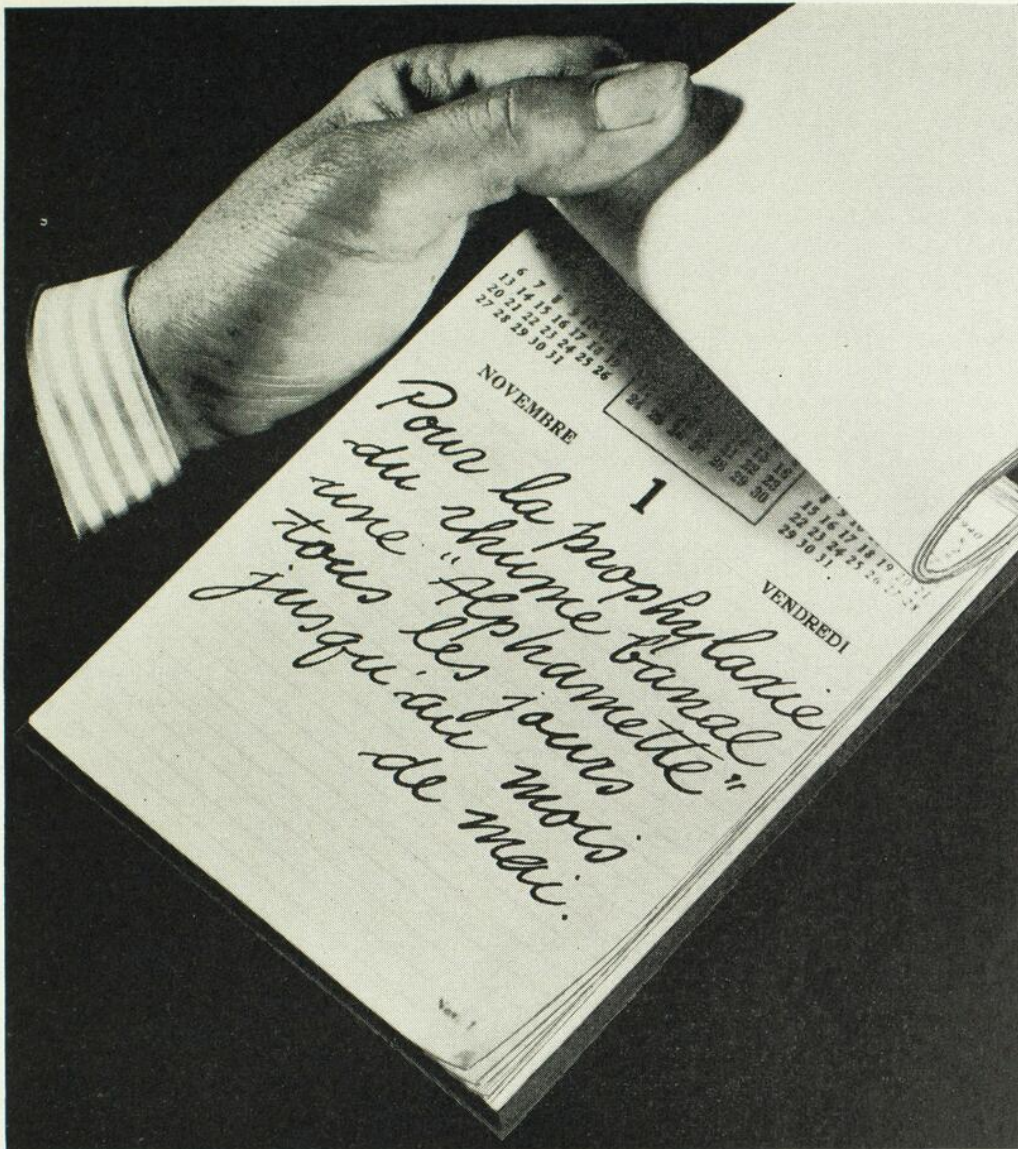 6 7 8
13 14 15 16 17 18 19
20 21 22 23 24 25 26
27 28 29 30 31
24 25 26 27 28 29 30
8 9 10
15 16 17 18 19 20 21
22 23 24 25 26 27 28
29 30 31
NOVEMBRE
1
VENDREDI
Pour la prophylaxie
du rhume banal
une "Alphamette"
tous les jours
jusqu'au mois
de mai.
Nov. 1